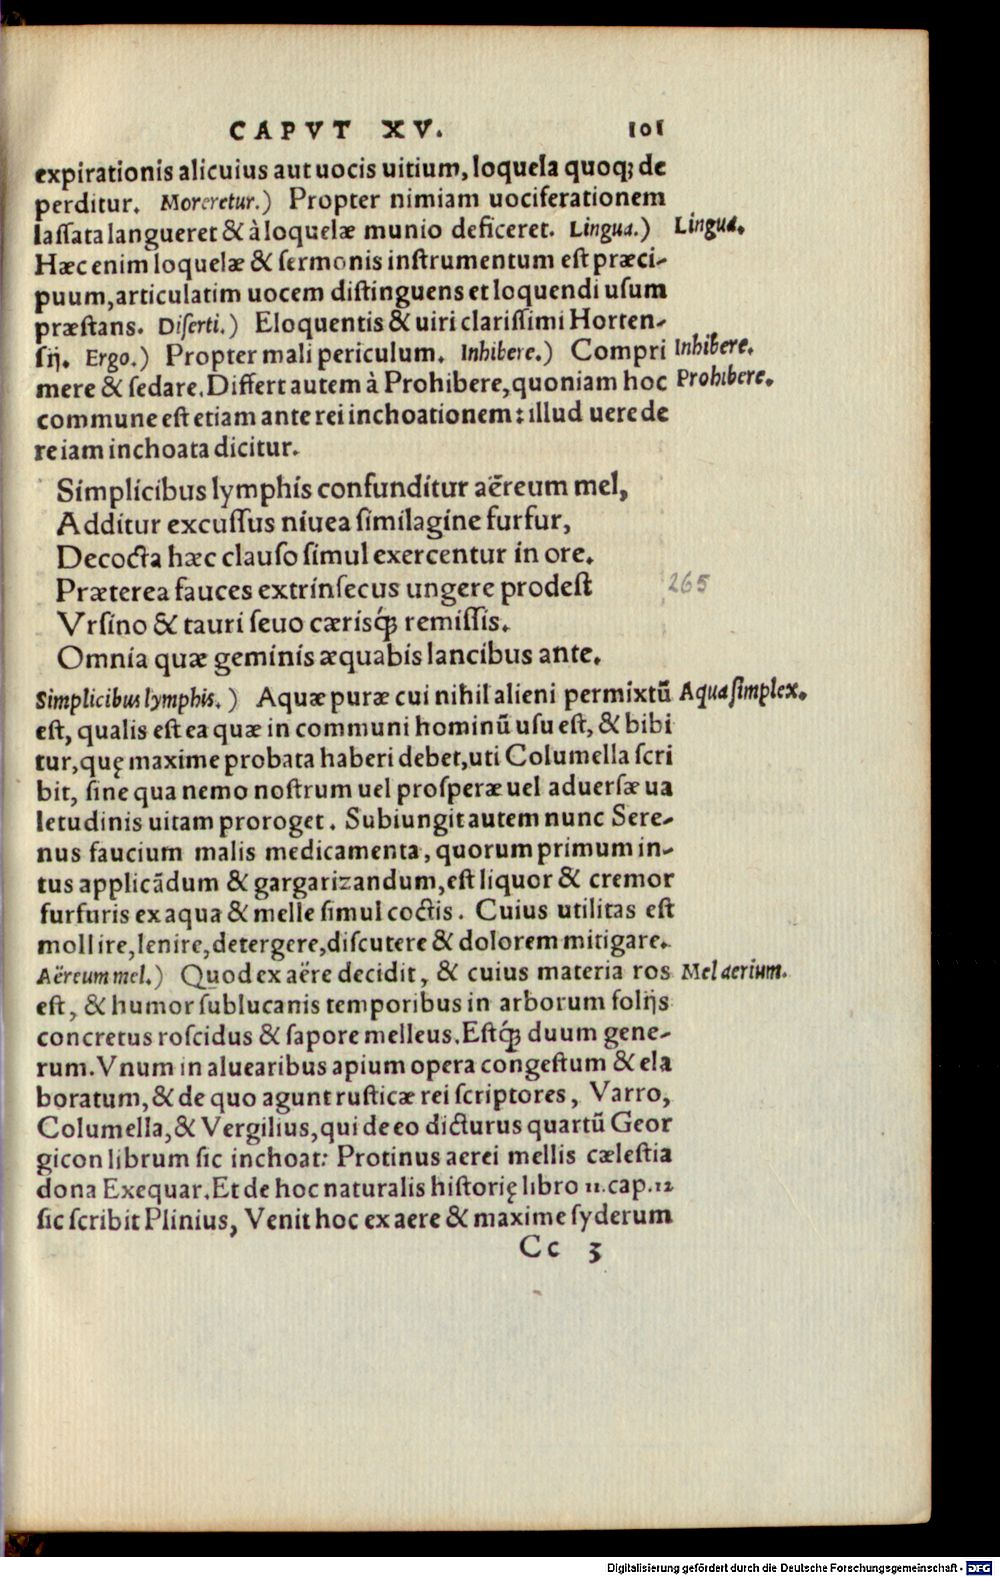 CAPVT XV. 101
expirationis alicuius aut uocis uitium, loquela quoq; de
perditur. Moreretur.) Propter nimiam uociferationem
lassata langueret & à loquelæ munio deficeret. Lingua.) Lingua.
Hæc enim loquelæ & sermonis instrumentum est præci-
puum, articulatim uocem distinguens et loquendi usum
præstans. Diserti.) Eloquentis & uiri clarissimi Horten-
sij. Ergo.) Propter mali periculum. Inhibere.) Compri Inhibere.
mere & sedare. Differt autem à Prohibere, quoniam hoc Prohibere.
commune est etiam ante rei inchoationem: illud uere de
re iam inchoata dicitur.
Simplicibus lymphis confunditur aëreum mel,
Additur excussus niuea similagine furfur,
Decocta hæc clauso simul exercentur in ore.
Præterea fauces extrinsecus ungere prodest 265
Vrsino & tauri seuo cærisq́; remissis.
Omnia quæ geminis æquabis lancibus ante.
Simplicibus lymphis.) Aquæ puræ cui nihil alieni permixtũ Aqua simplex.
est, qualis est ea quæ in communi hominũ usu est, & bibi
tur, quę maxime probata haberi debet, uti Columella scri
bit, sine qua nemo nostrum uel prosperæ uel aduersæ ua
letudinis uitam proroget. Subiungit autem nunc Sere-
nus faucium malis medicamenta, quorum primum in-
tus applicãdum & gargarizandum, est liquor & cremor
furfuris ex aqua & melle simul coctis. Cuius utilitas est
mollire, lenire, detergere, discutere & dolorem mitigare.
Aëreum mel.) Quod ex aëre decidit, & cuius materia ros Mel aerium.
est, & humor sublucanis temporibus in arborum folijs
concretus roscidus & sapore melleus. Estq́; duum gene-
rum. Vnum in aluearibus apium opera congestum & ela
boratum, & de quo agunt rusticæ rei scriptores, Varro,
Columella, & Vergilius, qui de eo dicturus quartũ Geor
gicon librum sic inchoat: Protinus aerei mellis cælestia
dona Exequar. Et de hoc naturalis historię libro 11. cap. 12
sic scribit Plinius, Venit hoc ex aere & maxime syderum
Cc 3
Digitalisierung gefördert durch die Deutsche Forschungsgemeinschaft - DFG